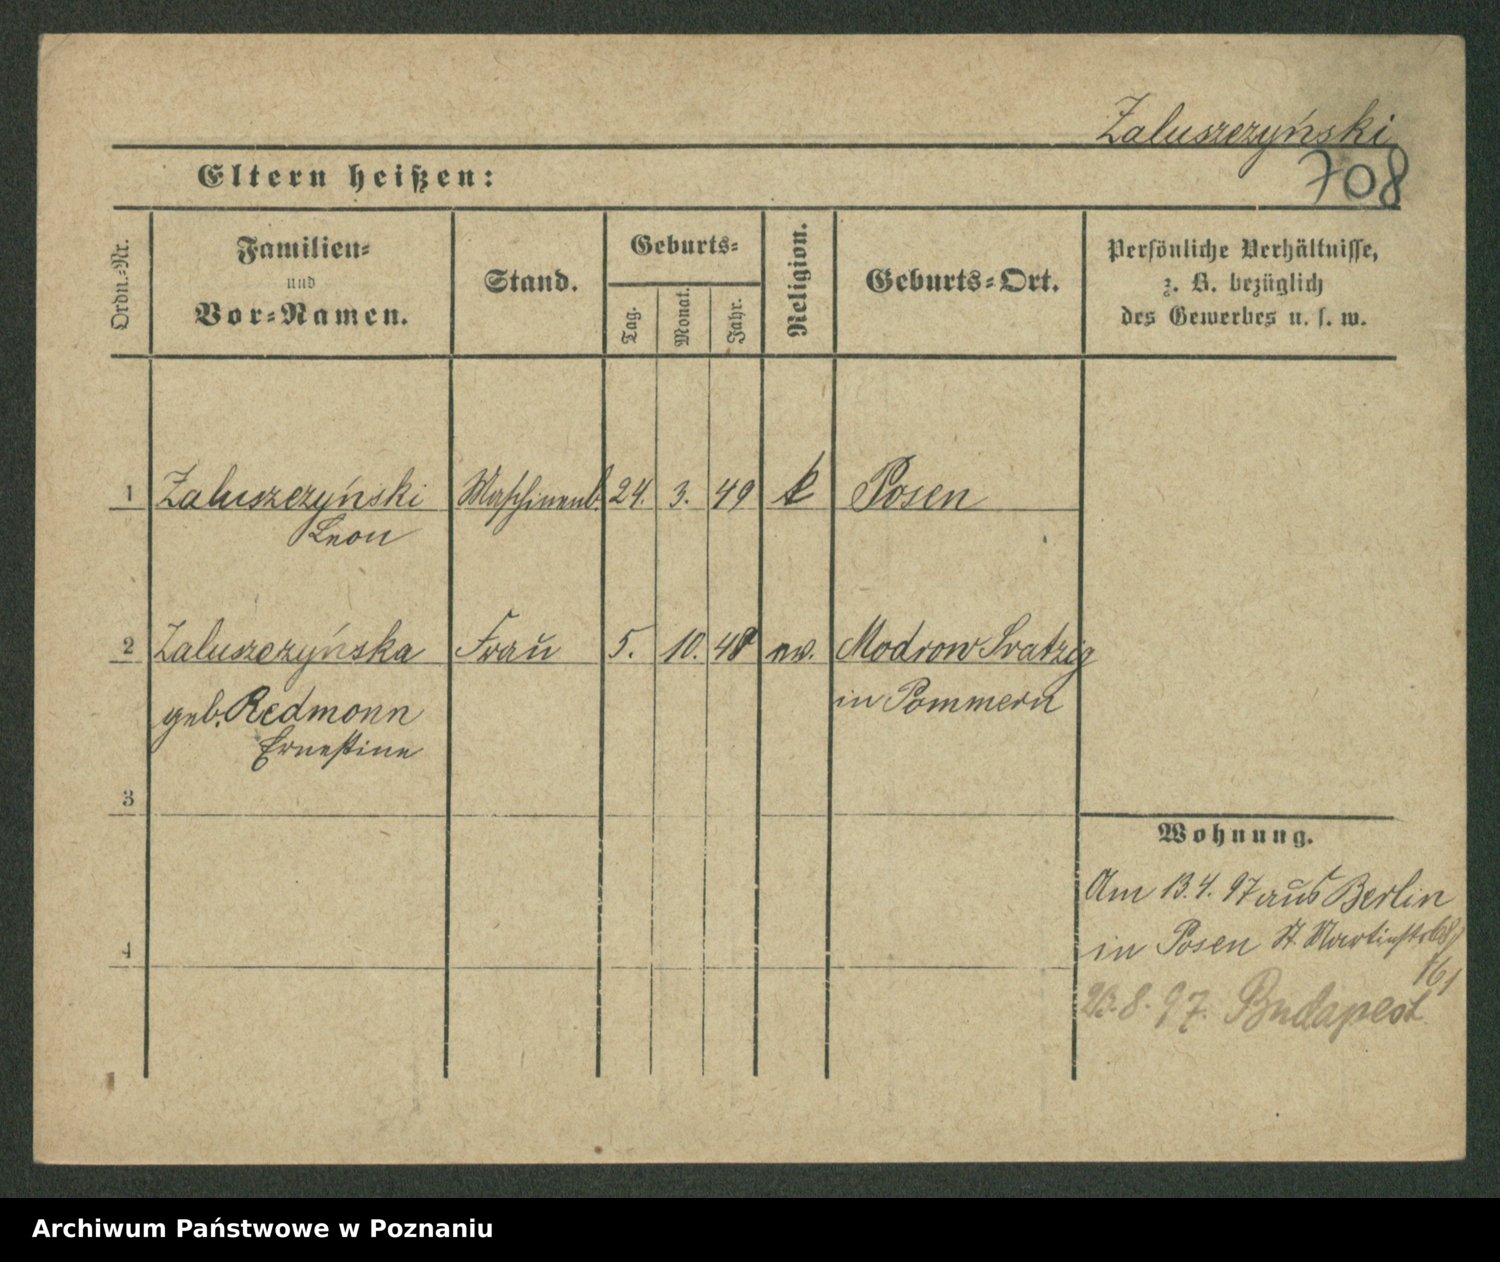 Zaluszczyński
708
Eltern heißen:
Ordn.-Nr.
Familien-
und
Vor-Namen.
Stand.
Geburts-
Tag.
Monat.
Jahr.
Religion.
Geburts-Ort.
Persönliche Verhältnisse,
z. B. bezüglich
des Gewerbes u. s. w.
1 Zaluszczyński Maschinenb. 24. 3. 49 k Posen
Leon
2 Zaluszczyńska Frau 5. 10. 48 ev. Modrow
in Pommern
geb. Redmonn
Ernestine
3
Wohnung.
Am 13.4.97 aus Berlin
in Posen St. Martinstr
4
8. 97. Budapest
Archiwum Państwowe w Poznaniu